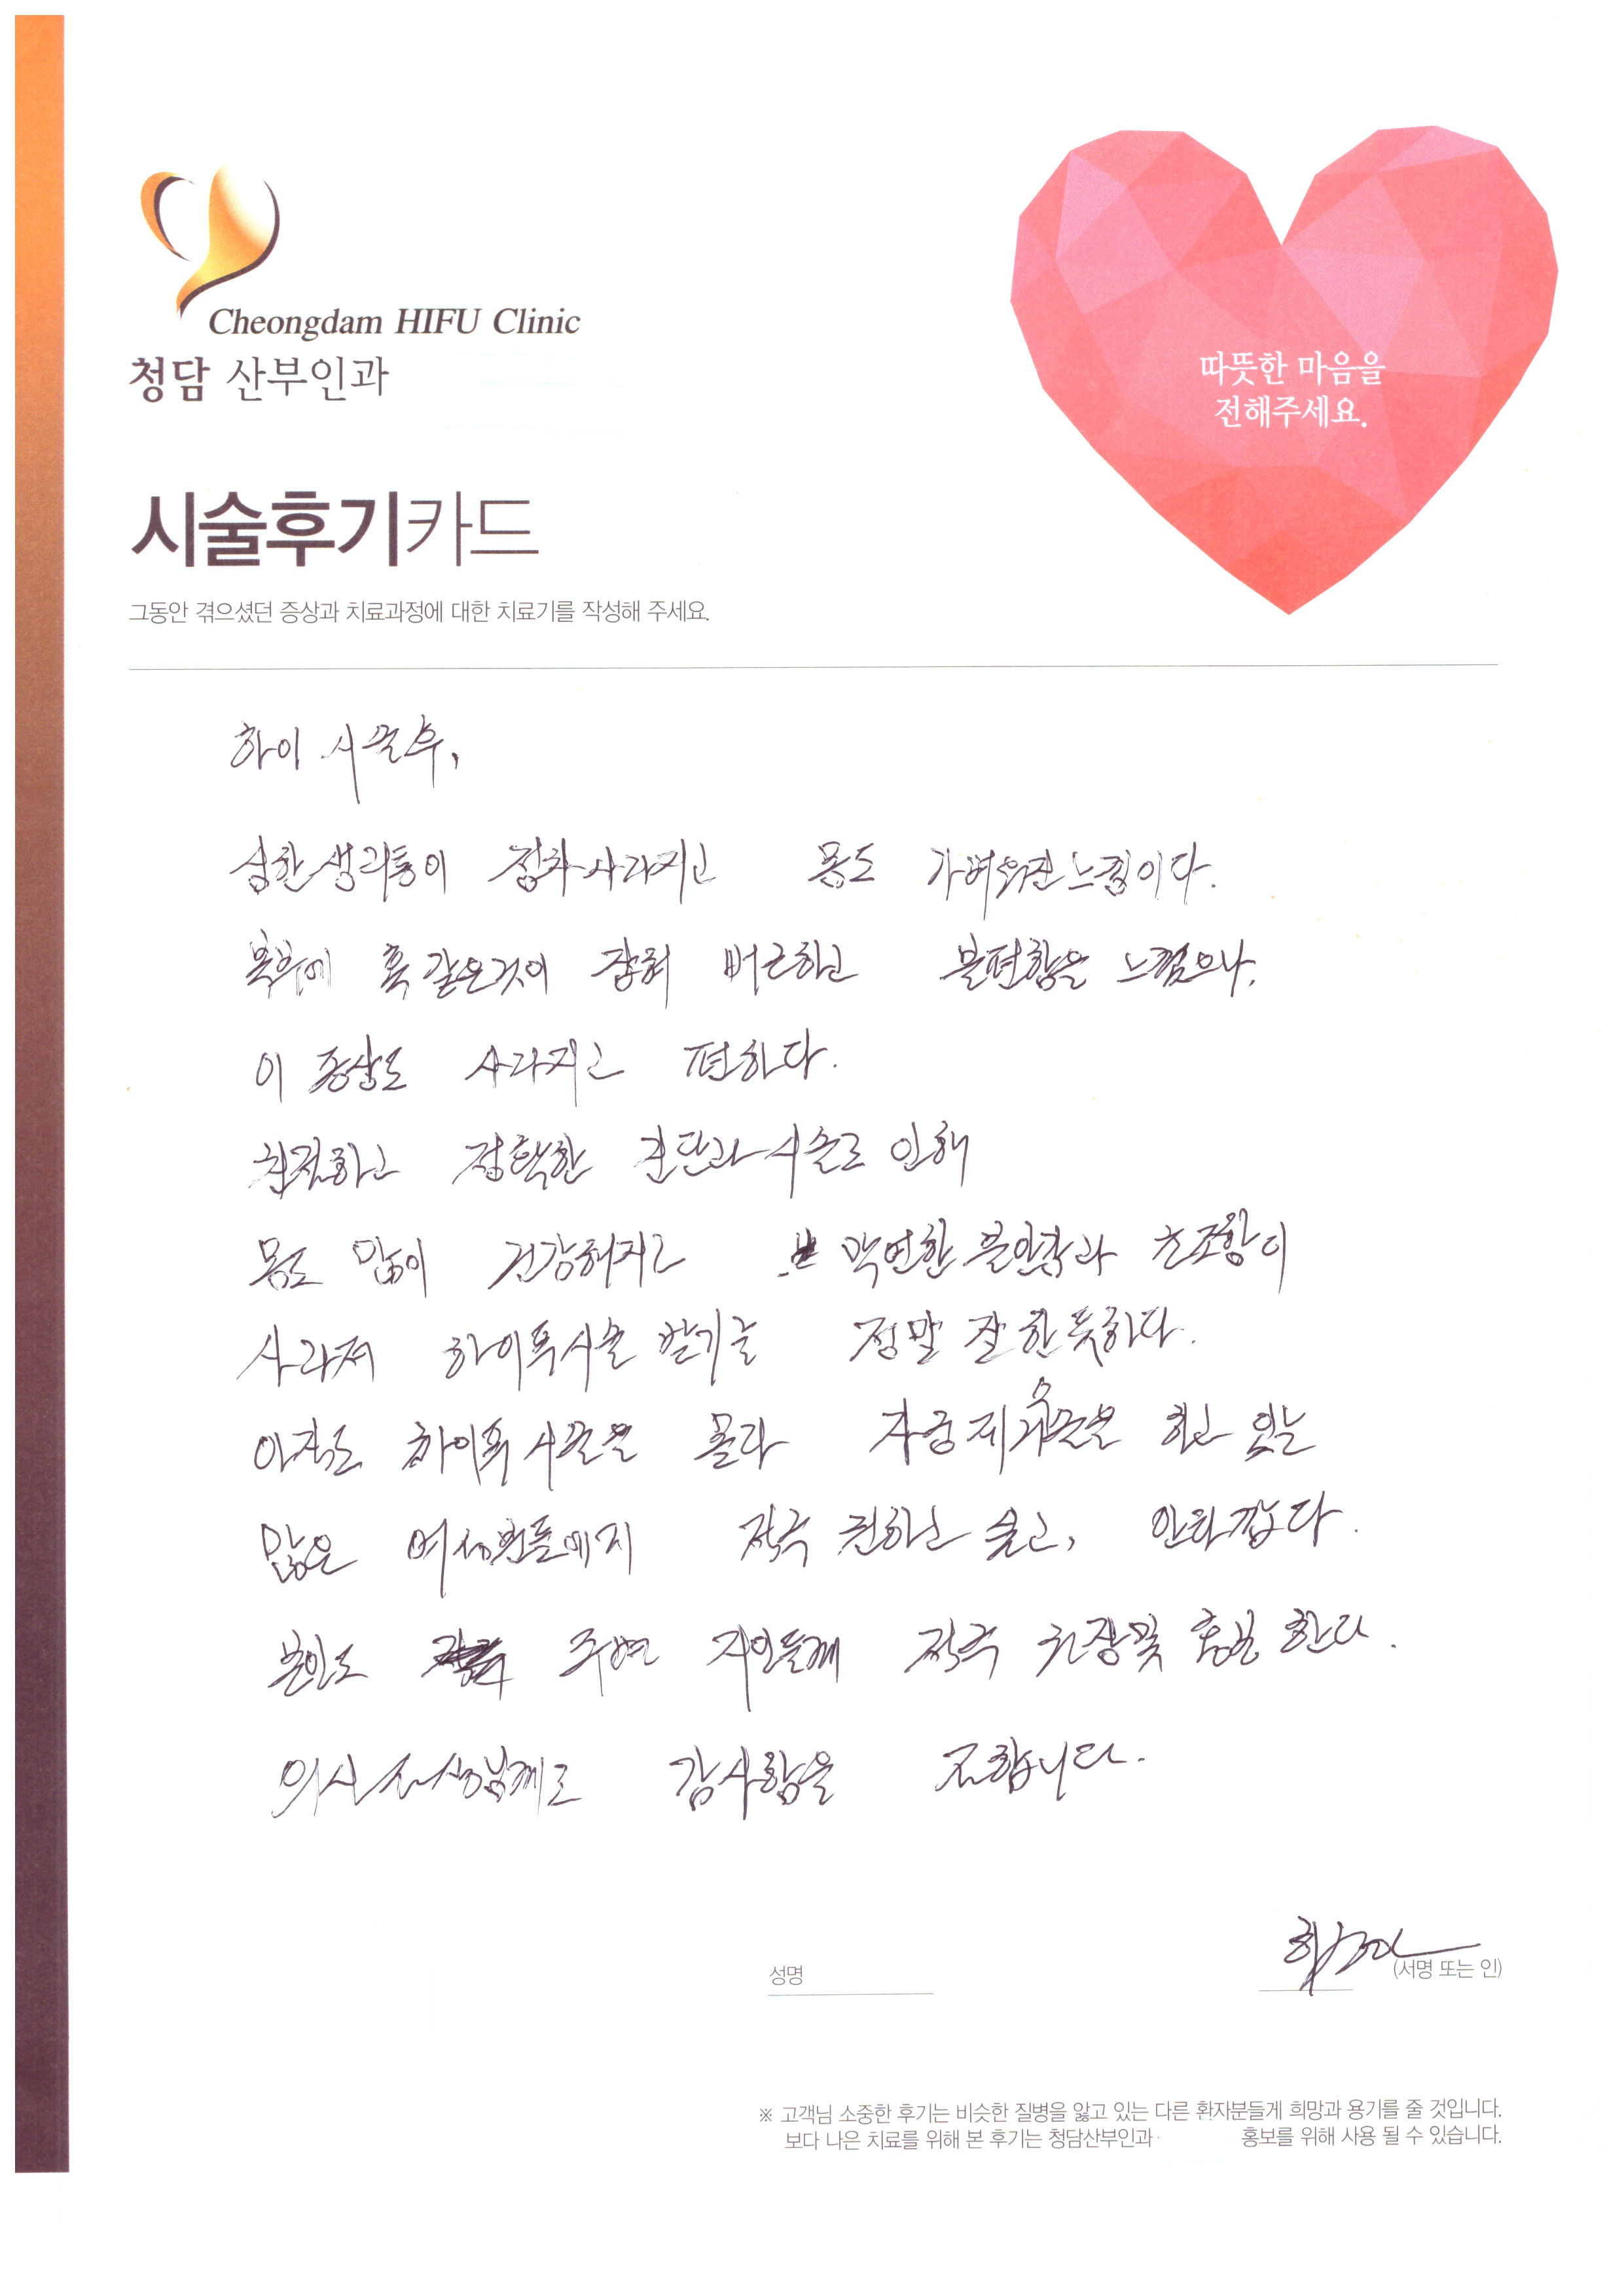 Cheongdam HIFU Clinic
청담 산부인과
따뜻한 마음을
전해주세요.
시술후기카드
그동안 겪으셨던 증상과 치료과정에 대한 치료기를 작성해 주세요.
하이 시술후,
심한 생리통이 점차 사라지고 몸도 가벼워진 느낌이다.
복부에 혹 같은것이 잡혀 버근하고 불편함을 느꼈으나,
이 증상도 사라지고 편하다.
친절하고 정확한 진단과 시술로 인해
몸도 많이 건강해지고 막연한 불안감과 초조함이
사라져 하이푸시술 받기를 정말 잘 한듯하다.
아직도 하이푸 시술을 몰라 자궁제거수술을 하고 있는
많은 여성분들에게 적극 권하고 싶고, 안타깝다.
본인도 주변 지인들께 적극 권장및 홍보 한다.
의사 선생님께도 감사함을 전합니다.
성명
(서명 또는 인)
※ 고객님 소중한 후기는 비슷한 질병을 앓고 있는 다른 환자분들게 희망과 용기를 줄 것입니다.
보다 나은 치료를 위해 본 후기는 청담산부인과 홍보를 위해 사용 될 수 있습니다.